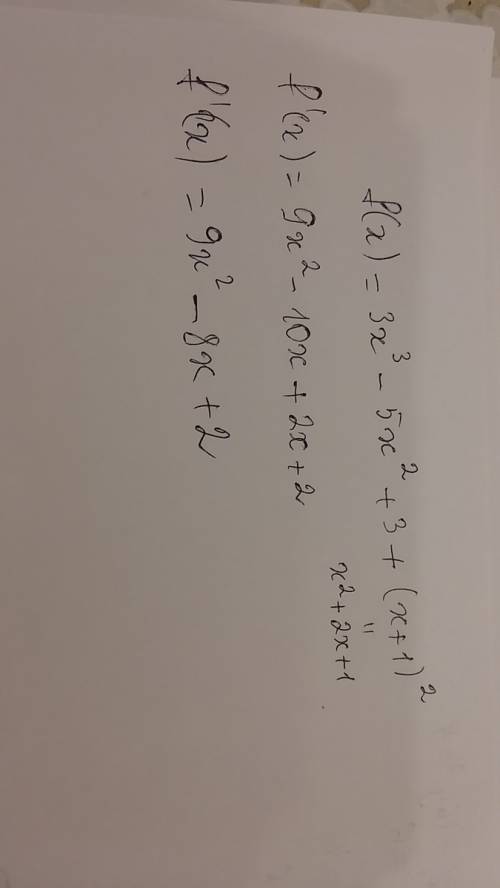 f(x) = 3x³ - 5x² + 3 + (x+1)²
"
x² + 2x + 1
f'(x) = 9x² - 10x + 2x + 2
f'(x) = 9x² - 8x + 2